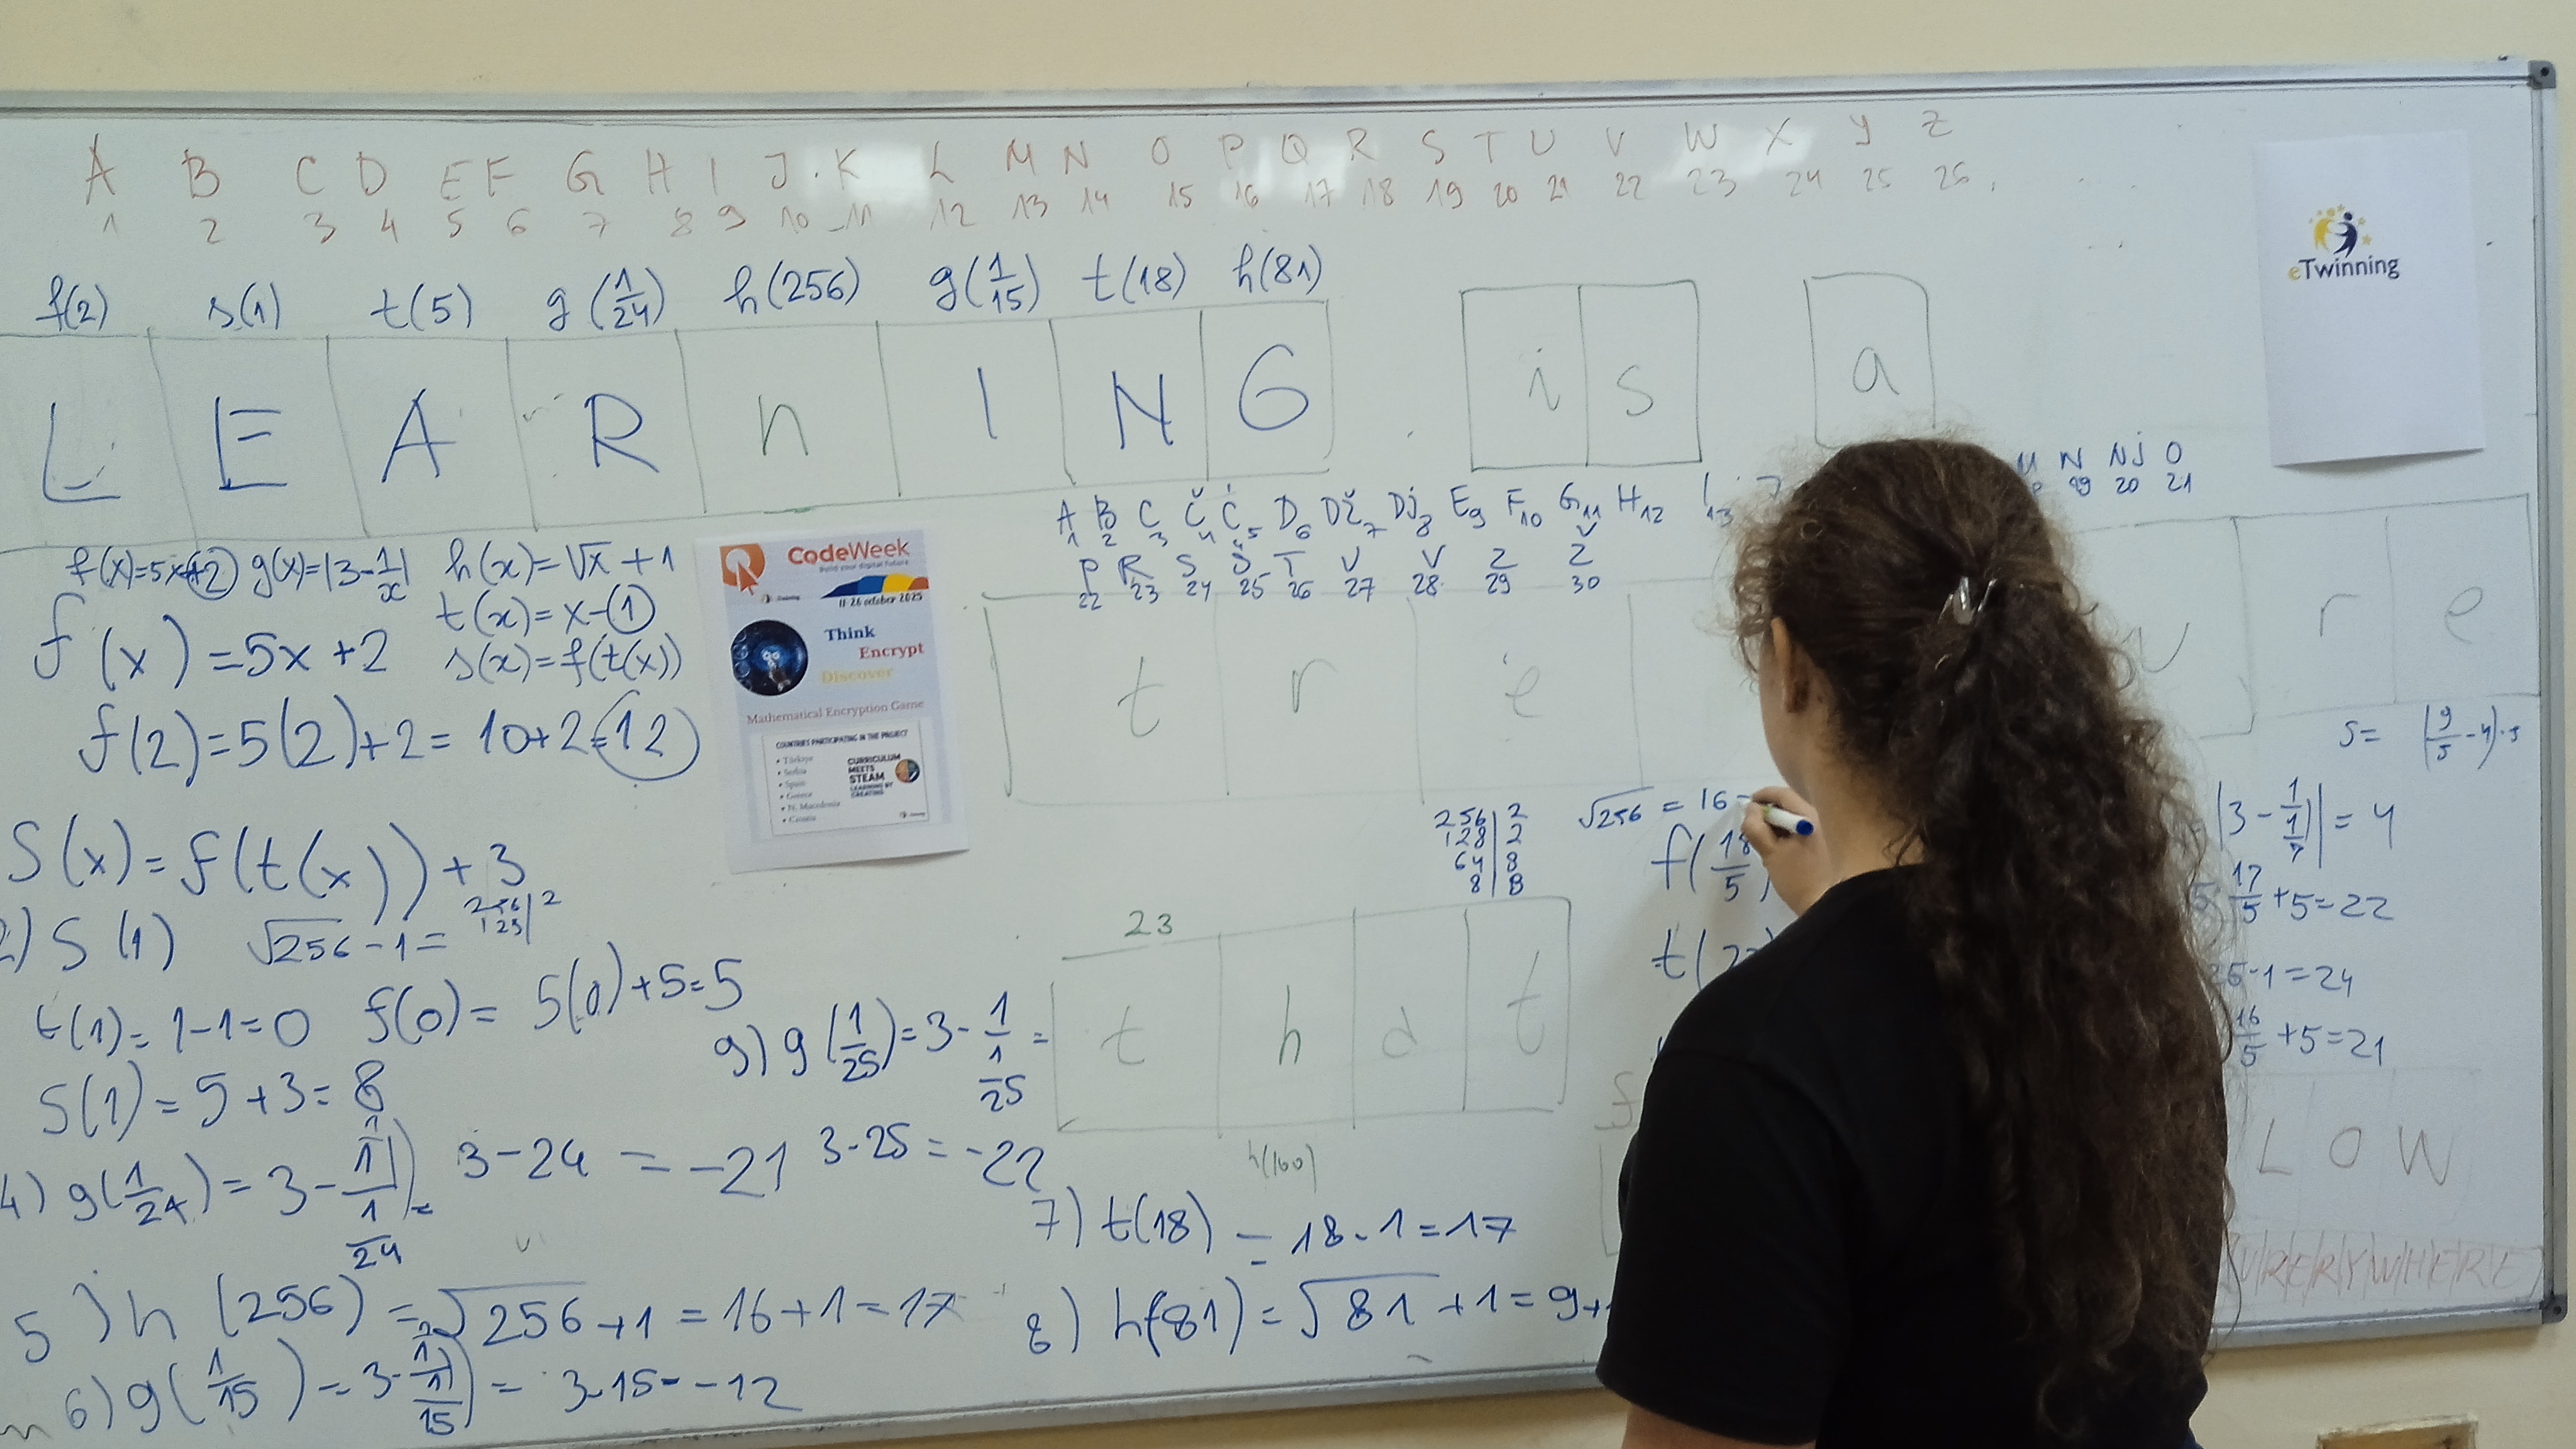 A B C D E F G H I J K L M N O P Q R S T U V W X Y Z
1 2 3 4 5 6 7 8 9 10 11 12 13 14 15 16 17 18 19 20 21 22 23 24 25 26
f(2) s(1) t(5) g(1/24) h(256) g(1/15) t(18) h(81)
L E A R n I N G i s a
eTwinning
A B C Č Ć D Dž Dj E F G H I J
1 2 3 4 5 6 7 8 9 10 11 12 13
N Nj O
19 20 21
P R S Š T U V Z Ž
22 23 24 25 26 27 28 29 30
t r e u r e
f(x)=5x+2 g(x)=|3-1/x| h(x)=√x+1
t(x)=x-1
f(x)=5x+2 s(x)=f(t(x))
f(2)=5(2)+2=10+2=12
CodeWeek
Build your digital future
11-26 october 2025
Think
Encrypt
Discover
Mathematical Encryption Game
COUNTRIES PARTICIPATING IN THE PROJECT
• Türkiye
• Serbia
• Spain
• Greece
• N. Macedonia
• Croatia
CURRICULUM
MEETS
STEAM
LEARNING BY
CREATING
S(x)=f(t(x))+3
256|2
128|
2) S(1) √256-1=
t(1)=1-1=0 f(0)=5(0)+5=5
S(1)=5+3=8
4) g(1/24)=3-1/(1/24)= 3-24=-21
5) h(256)=√256+1=16+1=17
6) g(1/15)=3-1/(1/15)=3-15=-12
9) g(1/25)=3-1/(1/25)=
3-25=-22
7) t(18)=18-1=17
8) h(81)=√81+1=9+1
256|2
128|2
64|8
8|8
√256=16
f(18/5)
23
t h a t
h(100)
|3-1/(1/7)|=4
17/5+5=22
-1=24
16/5+5=21
L O W
W H E R E